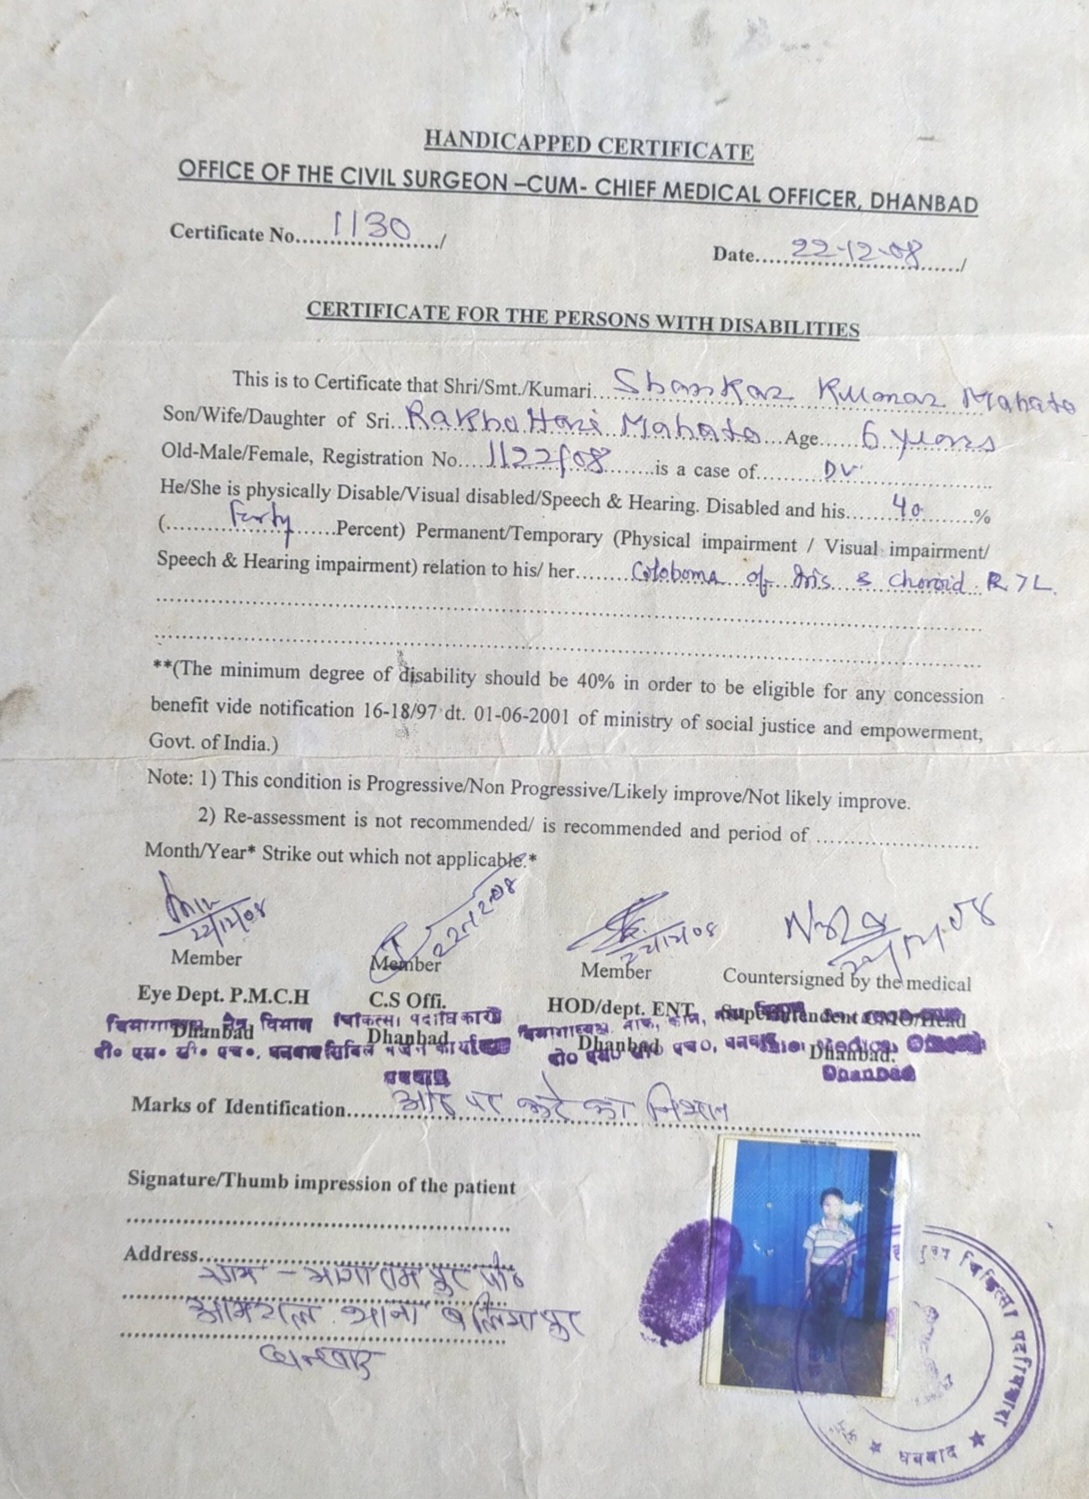 HANDICAPPED CERTIFICATE
OFFICE OF THE CIVIL SURGEON –CUM- CHIEF MEDICAL OFFICER, DHANBAD
Certificate No....1130..../
Date....22-12-08..../
CERTIFICATE FOR THE PERSONS WITH DISABILITIES
This is to Certificate that Shri/Smt./Kumari....Shankar Kumar Mahato
Son/Wife/Daughter of Sri...Rakho Hari Mahato...Age....6 years
Old-Male/Female, Registration No....1122/08....is a case of....DV
He/She is physically Disable/Visual disabled/Speech & Hearing. Disabled and his....40....%
(....Forty....Percent) Permanent/Temporary (Physical impairment / Visual impairment/
Speech & Hearing impairment) relation to his/ her....Coloboma of Iris & choroid R 7 L.
**(The minimum degree of disability should be 40% in order to be eligible for any concession
benefit vide notification 16-18/97 dt. 01-06-2001 of ministry of social justice and empowerment,
Govt. of India.)
Note: 1) This condition is Progressive/Non Progressive/Likely improve/Not likely improve.
2) Re-assessment is not recommended/ is recommended and period of ........................
Month/Year* Strike out which not applicable.*
22/12/08 22-12-08 22/12/08
Member Member Member Countersigned by the medical
Eye Dept. P.M.C.H C.S Offi. HOD/dept. ENT Superintendent CMO/Head
Dhanbad Dhanbad Dhanbad Dhanbad.
चिकित्सा पदाधिकारी
धनबाद
Dhanbad
Marks of Identification....ओठ पर कटे का निशान
Signature/Thumb impression of the patient
Address....
ग्राम –
थाना बलियापुर
धनबाद
चिकित्सा पदाधिकारी
★ धनबाद ★